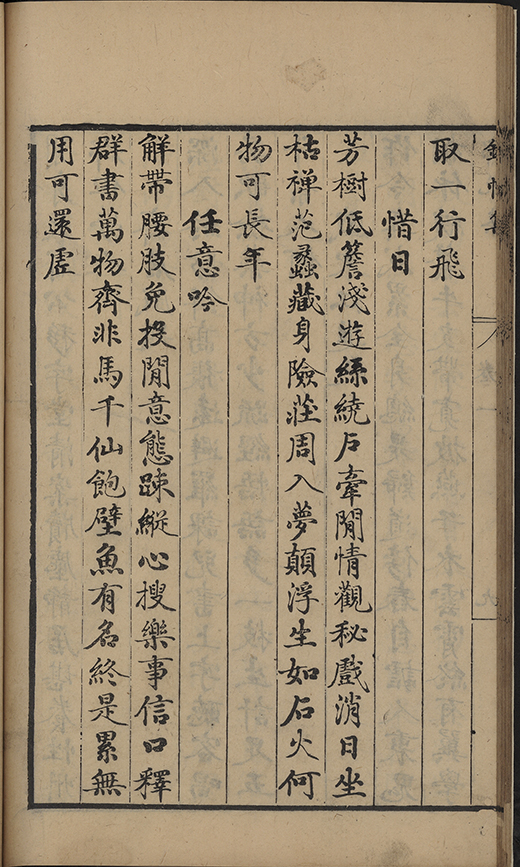 取一行飛
惜日
芳樹低簷淺遊絲繞戶牽閒情觀秘戲消日坐
枯禪范蠡藏身險莊周入夢顛浮生如石火何
物可長年
任意吟
解帶腰肢免投閒意態疎縱心搜樂事信口釋
群書萬物齊非馬千仙飽壁魚有名終是累無
用可還虛